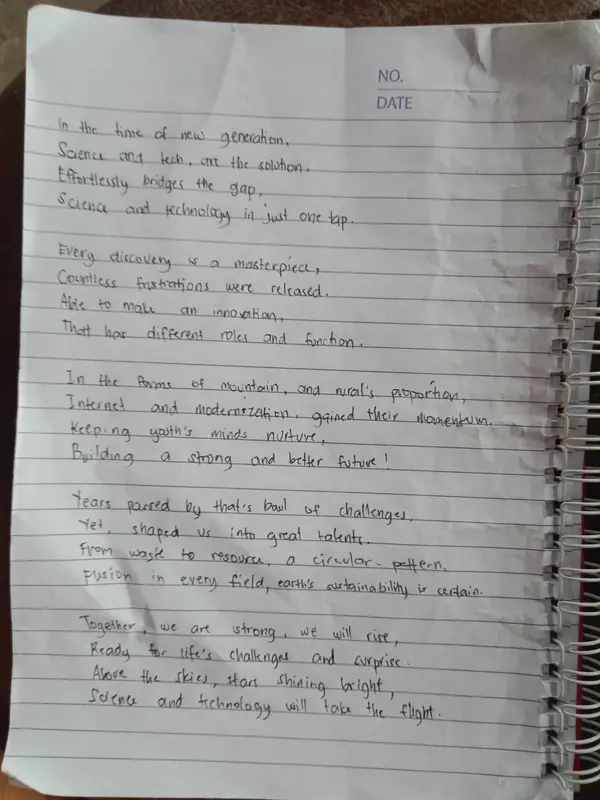 NO.
DATE
In the time of new generation,
Science and tech, are the solution.
Effortlessly bridges the gap,
Science and technology in just one tap.
Every discovery is a masterpiece,
Countless frustrations were released.
Able to make an innovation,
That has different roles and function.
In the forms of mountain, and rural's proportion,
Internet and modernization, gained their momentum.
Keeping youth's minds nurture,
Building a strong and better future!
Years passed by that's bowl of challenges,
Yet, shaped us into great talents.
From waste to resource, a circular pattern.
Fusion in every field, earth's sustainability is certain.
Together, we are strong, we will rise,
Ready for life's challenges and surprise.
Above the skies, stars shining bright,
Science and technology will take the flight.